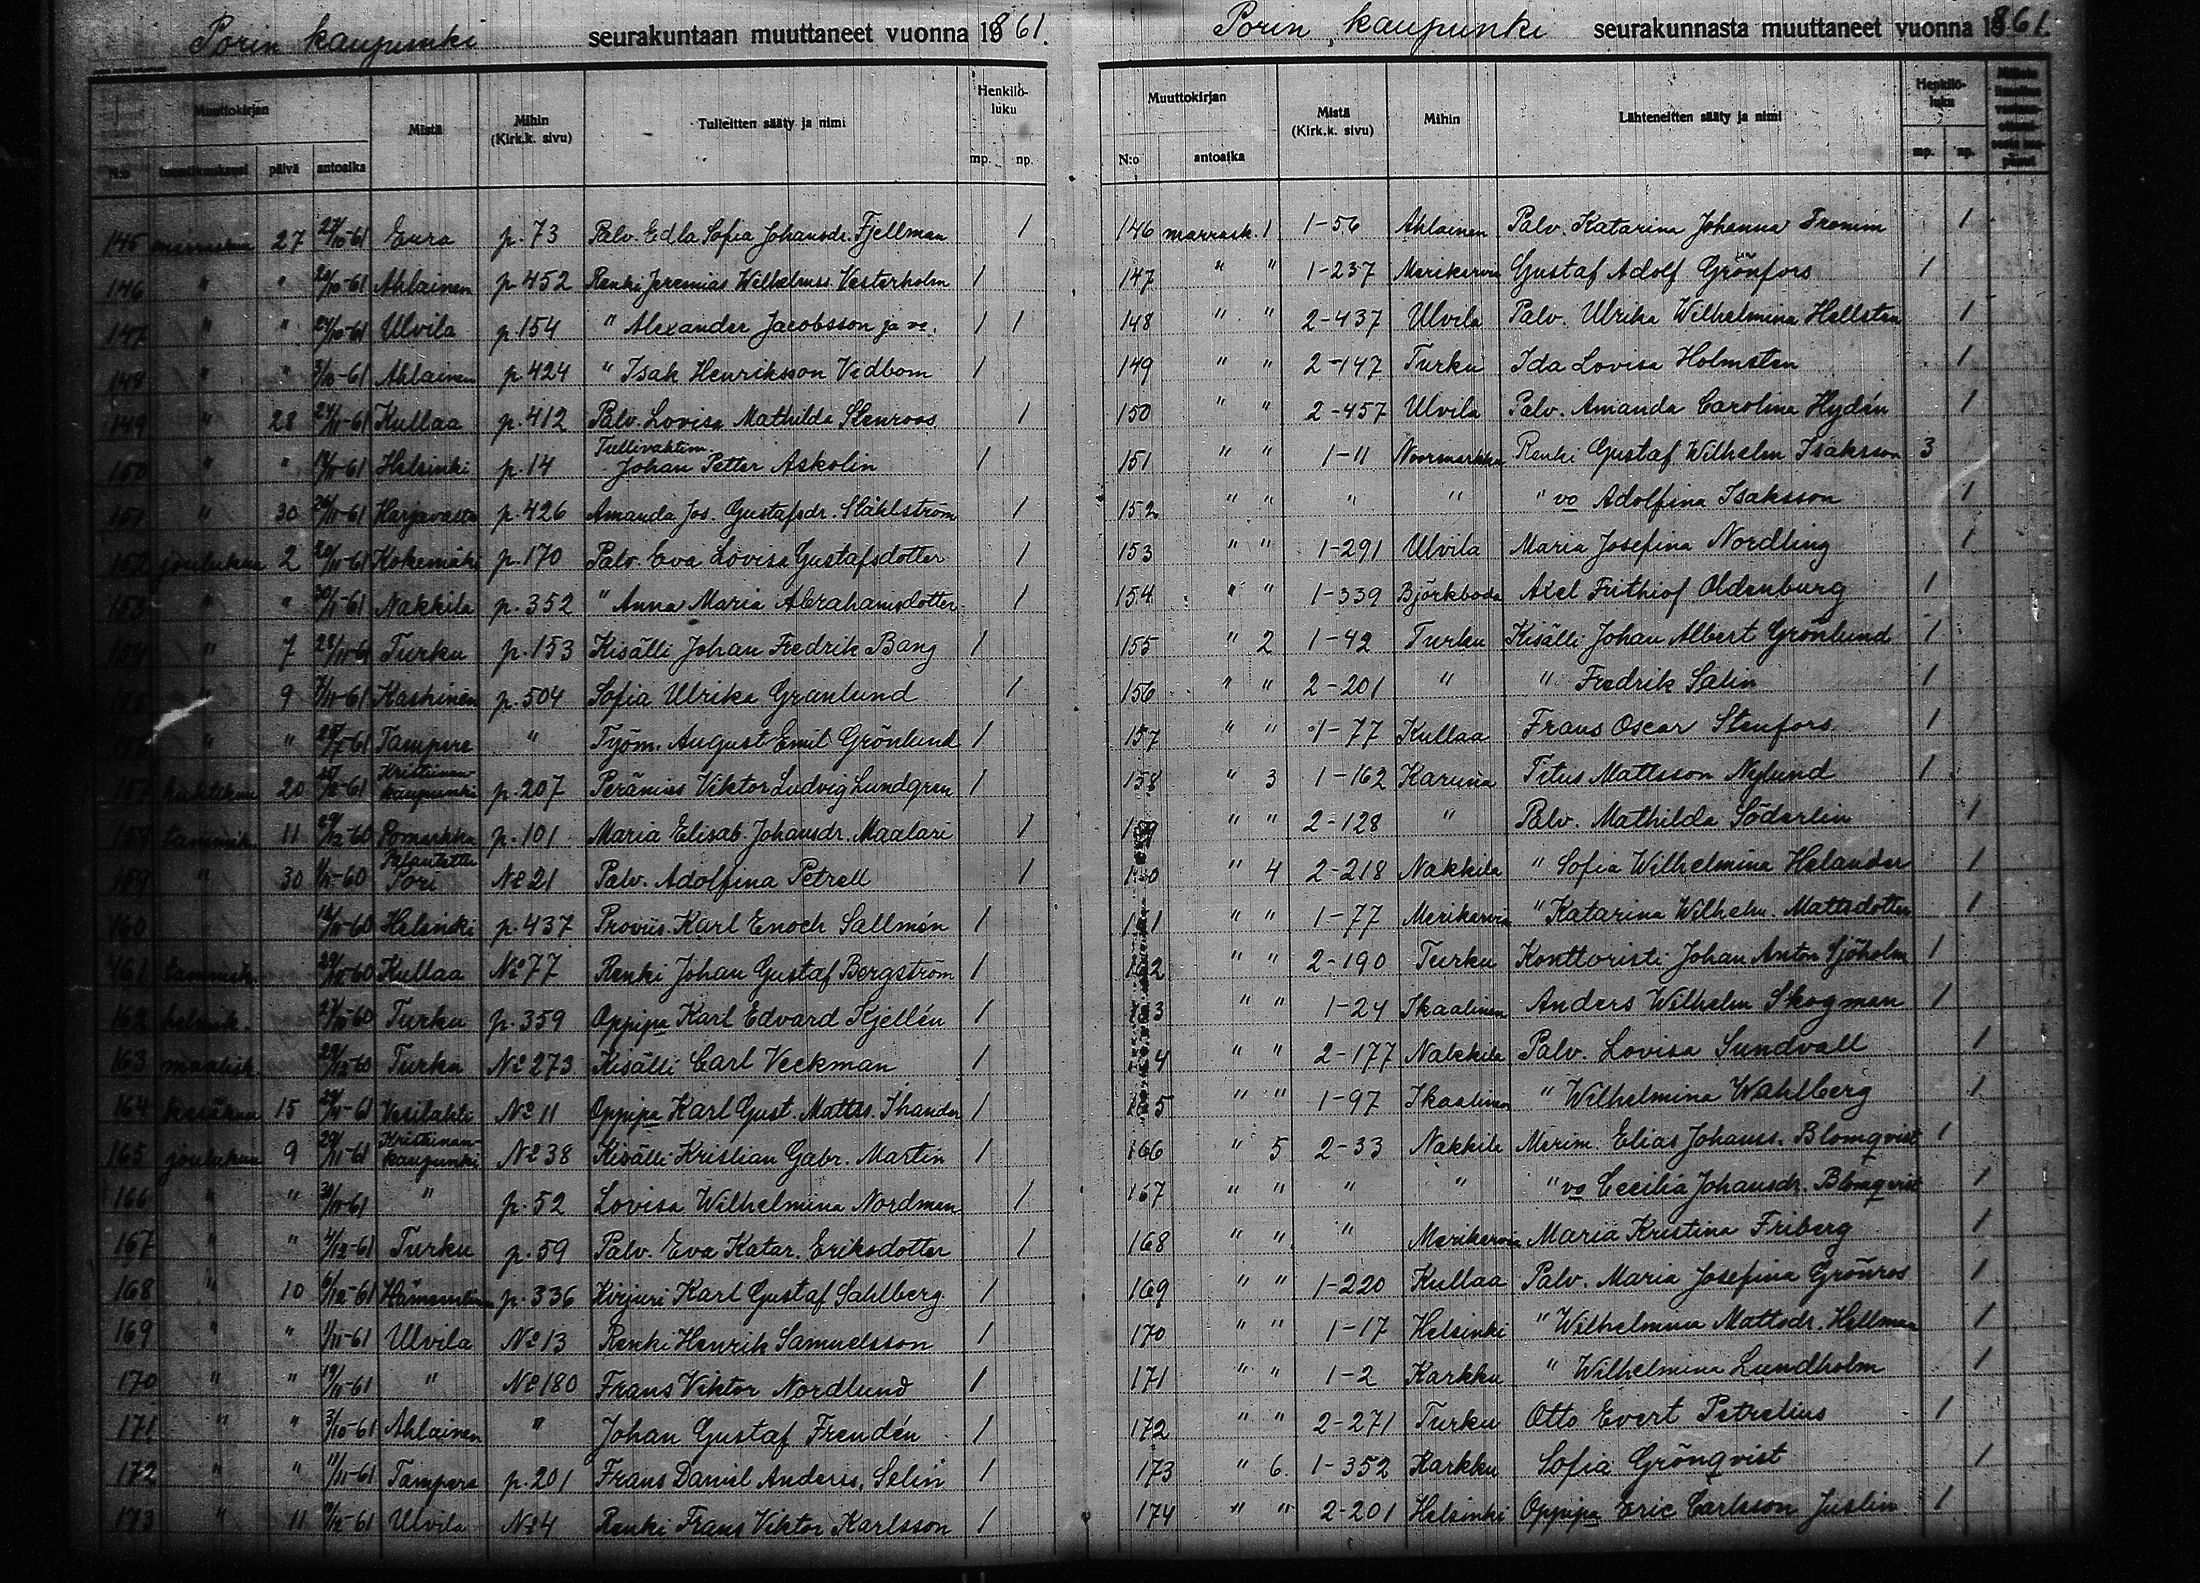 Porin kaupunki seurakuntaan muuttaneet vuonna 1861.
Muuttokirjan Mistä Mihin (Kirk.k. sivu) Tulleitten sääty ja nimi Henkilö-luku
N:o päivä antoaika mp. np.
145 27 Eura p. 73 Palv. Edla Sofia Johansdr. Fjellman 1
146 " " Ahlainen p. 452 Renki Jeremias Wilhelmss. Vesterholm 1
147 " " Ulvila p. 154 " Alexander Jacobsson ja vo. 1 1
148 " " Ahlainen p. 424 " Isak Henriksson Vidbom 1
149 " 28 Kullaa p. 412 Palv. Lovisa Mathilda Stenroos 1
150 " " Helsinki p. 14 Tullivahtim. Johan Petter Askolin 1
151 " 30 Harjavalta p. 426 Amanda Jos. Gustafsdr. Ståhlström 1
152 joulukuu 2 Kokemäki p. 170 Palv. Eva Lovisa Gustafsdotter 1
153 " " Nakkila p. 352 " Anna Maria Abrahamsdotter 1
154 " 7 Turku p. 153 Kisälli Johan Fredrik Bang 1
155 9 Kaskinen p. 504 Sofia Ulrika Granlund 1
" " Tampere " Työm. August Emil Grönlund 1
157 20 Kristiinan-kaupunki p. 207 Perämies Viktor Ludvig Lundgren 1
158 tammik. 11 Pomarkku p. 101 Maria Elisab. Johansdr. Maalari 1
159 " 30 Pori No 21 Palv. Adolfina Petrell 1
160 Helsinki p. 437 Proviis. Karl Enoch Sallmén 1
161 tammik. Kullaa No 77 Renki Johan Gustaf Bergström 1
162 helmik. Turku p. 359 Oppipa Karl Edvard Kjellén 1
163 maalisk. Turku No 273 Kisälli Carl Veckman 1
164 kesäkuu 15 Vesilahti No 11 Oppipa Karl Gust. Matts. Ihander 1
165 joulukuu 9 29/11-61 Kristiinan-kaupunki No 38 Kisälli Kristian Gabr. Martin 1
166 " " 30/11-61 " p. 52 Lovisa Wilhelmina Nordman 1
167 " " 4/12-61 Turku p. 59 Palv. Eva Katar. Eriksdotter 1
168 " 10 6/12-61 p. 336 Kirjuri Karl Gustaf Sahlberg 1
169 " " Ulvila No 13 Renki Henrik Samuelsson 1
170 " " 19/11-61 " No 180 Frans Viktor Nordlund 1
171 " " 3/10-61 Ahlainen " Johan Gustaf Frendén 1
172 " " 11/11-61 Tampere p. 201 Frans Daniel Anderss. Selin 1
173 " 11 Ulvila No 4 Renki Frans Viktor Karlsson 1
Porin kaupunki seurakunnasta muuttaneet vuonna 1861.
Muuttokirjan Mistä (Kirk.k. sivu) Mihin Lähteneitten sääty ja nimi Henkilö-luku
N:o antoaika mp. np.
146 marrask. 1 1-56 Ahlainen Palv. Katarina Johanna Fromm 1
147 " " 1-237 Merikarvia Gustaf Adolf Grönfors 1
148 " " 2-437 Ulvila Palv. Ulrika Wilhelmina Hellsten 1
149 " " 2-147 Turku Ida Lovisa Holmsten 1
150 " " 2-457 Ulvila Palv. Amanda Carolina Hydén 1
151 " " 1-11 Noormarkku Renki Gustaf Wilhelm Isaksson 3
152 " " " " " vo Adolfina Isaksson 1
153 " " 1-291 Ulvila Maria Josefina Nordling 1
154 " " 1-339 Björkboda Axel Frithiof Oldenburg 1
155 " 2 1-42 Turku Kisälli Johan Albert Grönlund 1
156 " " 2-201 " " Fredrik Salin 1
157 " " 1-77 Kullaa Frans Oscar Stenfors 1
158 " 3 1-162 Karuna Titus Mattsson Nylund 1
159 " " 2-128 " Palv. Mathilda Söderlin 1
160 " 4 2-218 Nakkila " Sofia Wilhelmina Helander 1
161 " " 1-77 Merikarvia " Katarina Wilhelm. Mattsdotter 1
162 " " 2-190 Turku Konttoristi Johan Anton Sjöholm 1
163 " " 1-24 Ikaalinen Anders Wilhelm Skogman 1
164 " " 2-177 Nakkila Palv. Lovisa Sundvall 1
165 " " 1-97 Ikaalinen " Wilhelmina Wahlberg 1
166 " 5 2-33 Nakkila Merim. Elias Johanss. Blomqvist 1
167 " " " " " vo Cecilia Johansdr. Blomqvist 1
168 " " " Merikarvia Maria Kristina Friberg 1
169 " " 1-220 Kullaa Palv. Maria Josefina Grönros 1
170 " " 1-17 Helsinki " Wilhelmina Mattsdr. Hellman 1
171 " " 1-2 Karkku " Wilhelmina Lundholm 1
172 " " 2-271 Turku Otto Evert Petrelius 1
173 " 6 1-352 Karkku Sofia Grönqvist 1
174 " " 2-201 Helsinki Oppipa Eric Carlsson Juslin 1